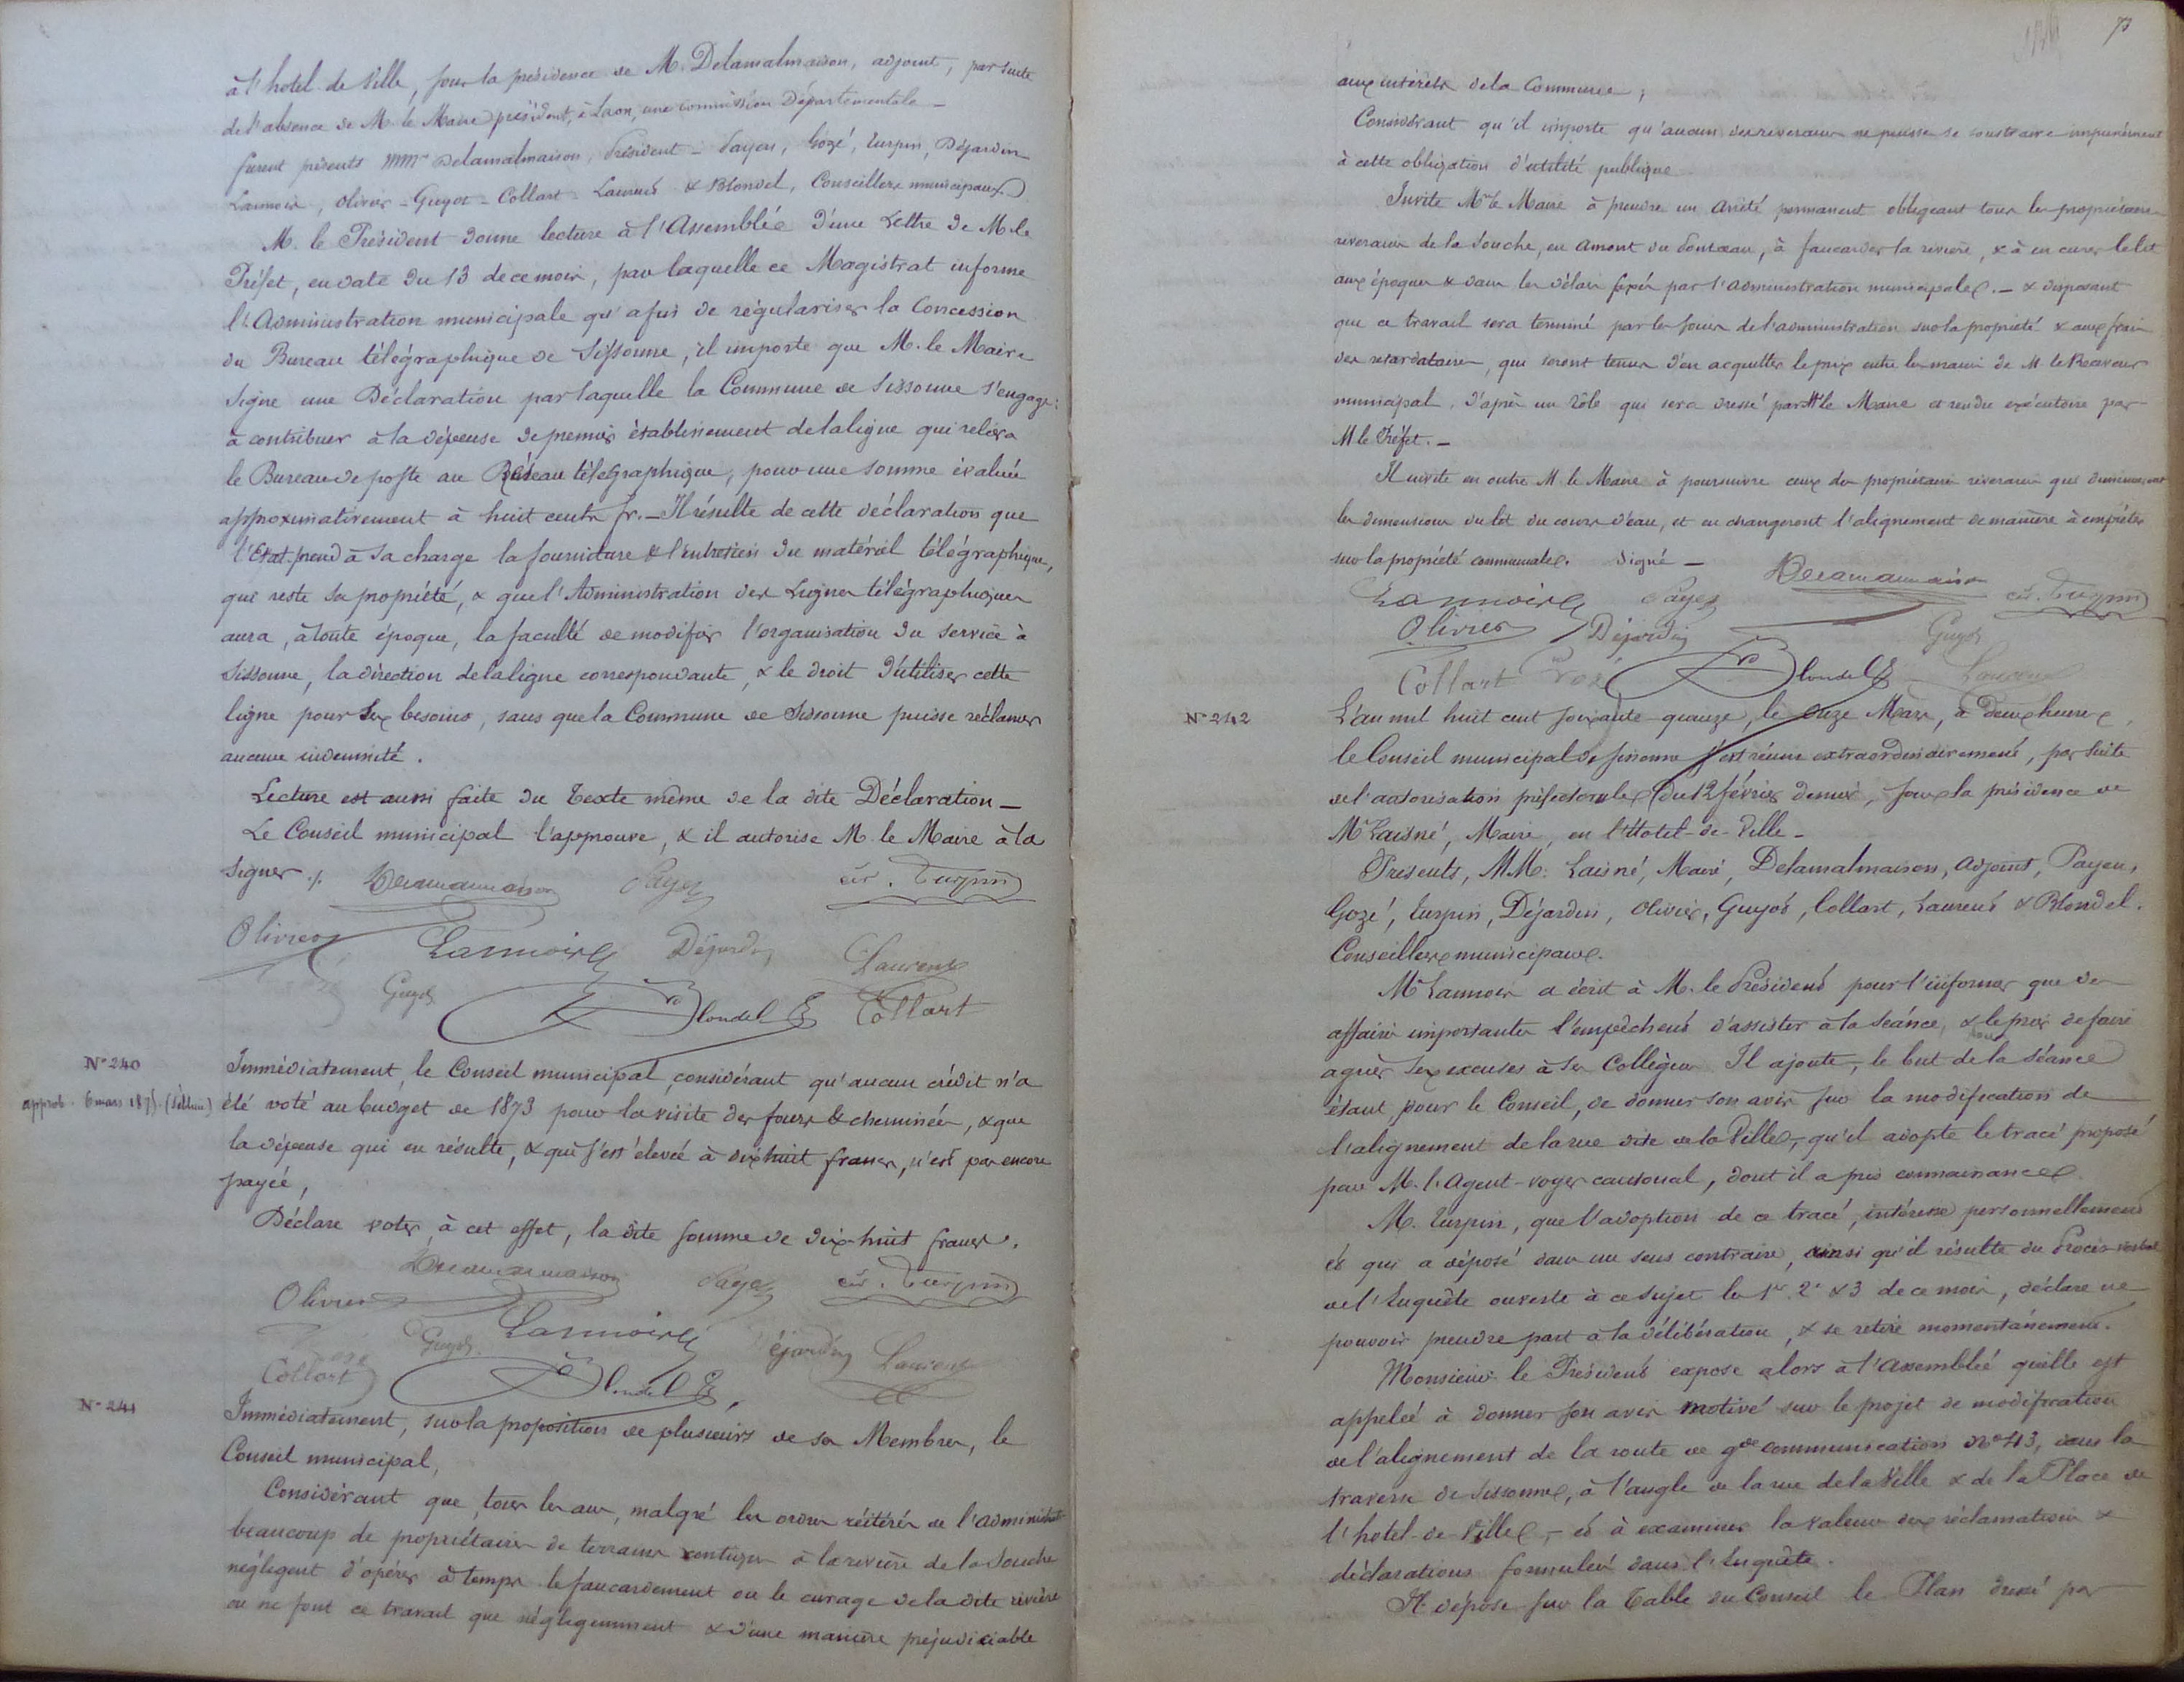 à l'hotel de Ville, sous la présidence de M. Delamalmaison, adjoint, par suite
de l'absence de M. le Maire président, à Laon, une commission Départementale –
furent présents MMrs Delamalmaison, Président – Payen, Gozé, Turpin, Déjardin
Lannois, Olivier – Guyot – Collart – Laurent & Blondel, Conseillers municipaux.
M. le Président donne lecture à l'Assemblée d'une Lettre de M. le
Préfet, en date du 13 de ce mois, par laquelle ce Magistrat informe
l'Administration municipale qu'afin de régulariser la Concession
du Bureau télégraphique de Sissonne, il importe que M. le Maire
signe une Déclaration par laquelle la Commune de Sissonne s'engage :
à contribuer à la dépense de premier établissement de la ligne qui reliera
le Bureau de poste au Réseau télégraphique, pour une somme évaluée
approximativement à huit cents fr. – Il résulte de cette déclaration que
l'Etat prend à sa charge la fourniture & l'entretien du matériel télégraphique,
qui reste sa propriété, & que l'Administration des Lignes télégraphiques
aura, à toute époque, la faculté de modifier l'organisation du service à
Sissonne, la direction de la ligne correspondante, & le droit d'utiliser cette
ligne pour ses besoins, sans que la Commune de Sissonne puisse réclamer
aucune indemnité.
Lecture est aussi faite du Texte même de la dite Déclaration –
Le Conseil municipal l'approuve, & il autorise M. le Maire à la
signer ./. Delamalmaison Payen Turpin
Olivier Lannois Déjardin Laurent
Guyot Blondel Collart
N° 240
approb. 6 mars 1875.
Immédiatement, le Conseil municipal, considérant qu'aucun crédit n'a
été voté au budget de 1873 pour la visite des fours & cheminées, & que
la dépense qui en résulte, & qui s'est élevée à dix huit francs, n'est pas encore
payée,
Déclare voter, à cet effet, la dite somme de dix-huit francs.
Delamalmaison Payen Turpin
Olivier Lannois
Gozé Guyot Déjardin Laurent
Collart Blondel
N° 241
Immédiatement, sur la proposition de plusieurs de ses Membres, le
Conseil municipal,
Considérant que, tous les ans, malgré les ordres réitérés de l'administrat
beaucoup de propriétaires de terrains contigus à la rivière de la Souche
négligent d'opérer à temps le faucardement ou le curage de la dite rivière
ou ne font ce travail que négligemment & d'une manière préjudiciable
73
aux intérêts de la Commune ;
Considérant qu'il importe qu'aucun des riverains ne puisse se soustraire impunément
à cette obligation d'utilité publique
Invite Mr le Maire à prendre un arrêté permanent obligeant tous les propriétaires
riverains de la Souche, en amont du Ponceau, à faucarder la rivière, & à en curer le lit
aux époques & dans les délais fixés par l'administration municipale. – & disposant
que ce travail sera terminé par les soins de l'administration sur la propriété & aux frais
des retardataires, qui seront tenus d'en acquitter le prix entre les mains de M. le Receveur
municipal, d'après un rôle qui sera dressé par M le Maire et rendu exécutoire par
M le Préfet. –
Il invite en outre M. le Maire à poursuivre ceux des propriétaires riverains qui
les dimensions du lit du cours d'eau, et en changeront l'alignement de manière à empiéter
sur la propriété communale. Signé – Delamalmaison
Lannois Payen Turpin
Olivier Déjardin Guyot
Collart Gozé Blondel Laurent
N° 242
L'an mil huit cent soixante-quinze, le onze Mars, à deux heures,
le Conseil municipal de Sissonne s'est réuni extraordinairement, par suite
de l'autorisation préfectorale du 12 février dernier, sous la présidence de
Mr Laisné, Maire, en l'Hotel-de-Ville –
Présents, MM. Laisné, Maire, Delamalmaison, adjoint, Payen,
Gozé, Turpin, Déjardin, Olivier, Guyot, Collart, Laurent & Blondel.
Conseillers municipaux.
Mr Lannois a écrit à M. le Président pour l'informer que des
affaires importantes l'empêchent d'assister à la séance, & le prier de faire
agréer ses excuses à ses Collègues. Il ajoute, le but de la séance
étant, pour le Conseil, de donner son avis sur la modification de
l'alignement de la rue dite de la Ville, qu'il adopte le tracé proposé
par M. l'Agent-voyer cantonal, dont il a pris connaissance.
M. Turpin, que l'adoption de ce tracé, intéresse personnellement
et qui a déposé dans un sens contraire, ainsi qu'il résulte du Procès-verbal
de l'Enquête ouverte à ce sujet les 1er 2 & 3 de ce mois, déclare ne
pouvoir prendre part à la délibération, & se retire momentanément.
Monsieur le Président expose alors à l'Assemblée qu'elle est
appelée à donner son avis motivé sur le projet de modification
de l'alignement de la route de gde communication N° 43, dans la
traverse de Sissonne, à l'angle de la rue de la Ville & de la Place de
l'hotel-de-Ville, – et à examiner la valeur des réclamations &
déclarations formulées dans l'Enquête.
Il dépose sur la Table du Conseil le Plan dressé par